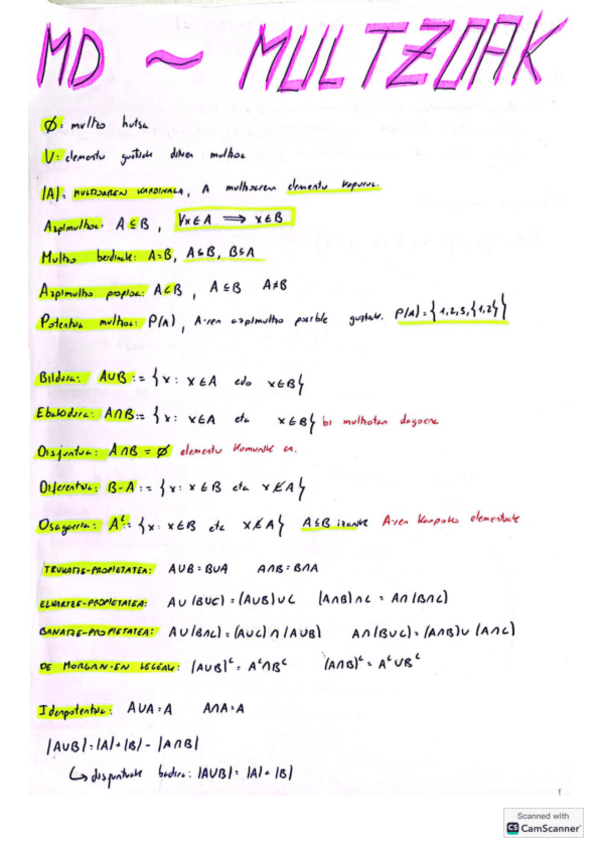 MD ~ MULTZOAK
∅: multzo hutsa
U: elementu guztiak dituen multzoa
|A|: MULTZOAREN KARDINALA, A multzoaren elementu kopurua.
Azpimultzoa: A⊆B, ∀x∈A ⟹ x∈B
Multzo berdinak: A=B, A⊆B, B⊆A
Azpimultzo propioa: A⊂B, A⊆B A≠B
Potentzia multzoa: P(A), A-ren azpimultzo posible guztiak. P(A)={1,2,3,{1,2}}
Bildura: A∪B := {x: x∈A edo x∈B}
Ebakidura: A∩B:= {x: x∈A eta x∈B} bi multzotan dagoena
Disjuntua: A∩B = ∅ elementu komunik ez.
Diferentzia: B-A := {x: x∈B eta x∉A}
Osagarria: Aᶜ:= {x: x∈B eta x∉A} A⊆B izanik A-ren kanpoko elementuak
TRUKATZE-PROPIETATEA: A∪B=B∪A A∩B=B∩A
ELKARTZE-PROPIETATEA: A∪(B∪C)=(A∪B)∪C (A∩B)∩C=A∩(B∩C)
BANATZE-PROPIETATEA: A∪(B∩C)=(A∪C)∩(A∪B) A∩(B∪C)=(A∩B)∪(A∩C)
DE MORGAN-EN LEGEAK: (A∪B)ᶜ=Aᶜ∩Bᶜ (A∩B)ᶜ=Aᶜ∪Bᶜ
Idenpotentzia: A∪A=A A∩A=A
|A∪B|=|A|+|B|-|A∩B|
↳ disjuntuak badira: |A∪B|=|A|+|B|
Scanned with
CS CamScanner